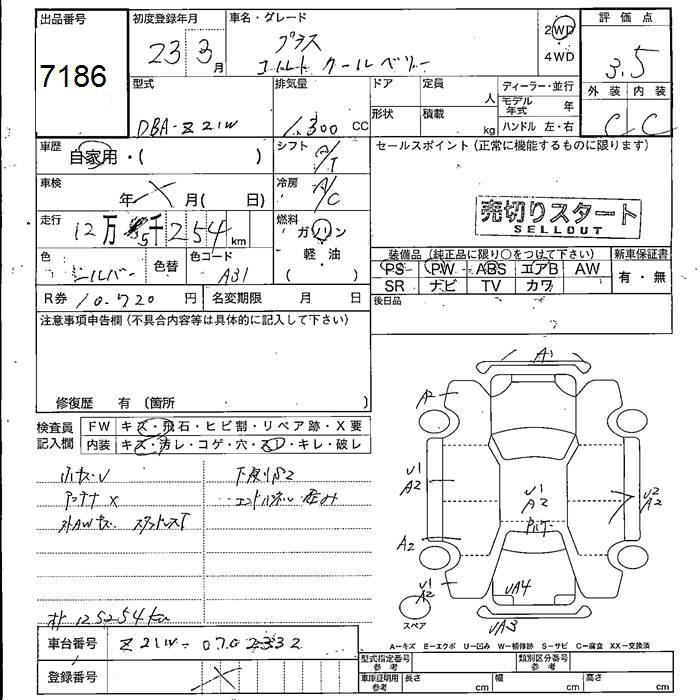 出品番号
7186
初度登録年月
23 3月
車名・グレード
プラス
コルト クールベリー
2WD
4WD
評価点
3.5
外装 内装
C C
型式
DBA-Z21W
排気量
1,300 CC
ドア
定員
人
形状
積載
kg
ディーラー・並行
モデル年式 年
ハンドル 左・右
車歴
自家用・( )
シフト
A/T
セールスポイント(正常に機能するものに限ります)
車検
年 月( 日)
冷房
A/C
売切りスタート
SELLOUT
走行
12万5千254km
燃料
ガソリン
軽油
( )
色
シルバー
色替
色コード
A31
装備品(純正品に限り○をつけて下さい)
新車保証書
PS PW ABS エアB AW
SR ナビ TV カワ
有・無
R券 10,720円
名変期限 月 日
後日品
注意事項申告欄(不具合内容等は具体的に記入して下さい)
修復歴 有〔箇所 〕
検査員記入欄
FW キズ・飛石・ヒビ割・リペア跡・X要
内装 キズ・汚レ・コゲ・穴・スレ・キレ・破レ
小キズU
下廻りS2
アンテナX
A1
A2
U1
A2
A2
U1
A2
U1
A2
U2
A2
UA4
UA3
スペア
オド 125254km
A−キズ E−エクボ U−凹み W−補修跡 S−サビ C−腐食 XX−交換済
車台番号
Z21W-0702332
登録番号
型式指定番号 参考
類別区分番号 参考
車庫証明用 参考
長さ cm
幅 cm
高さ cm